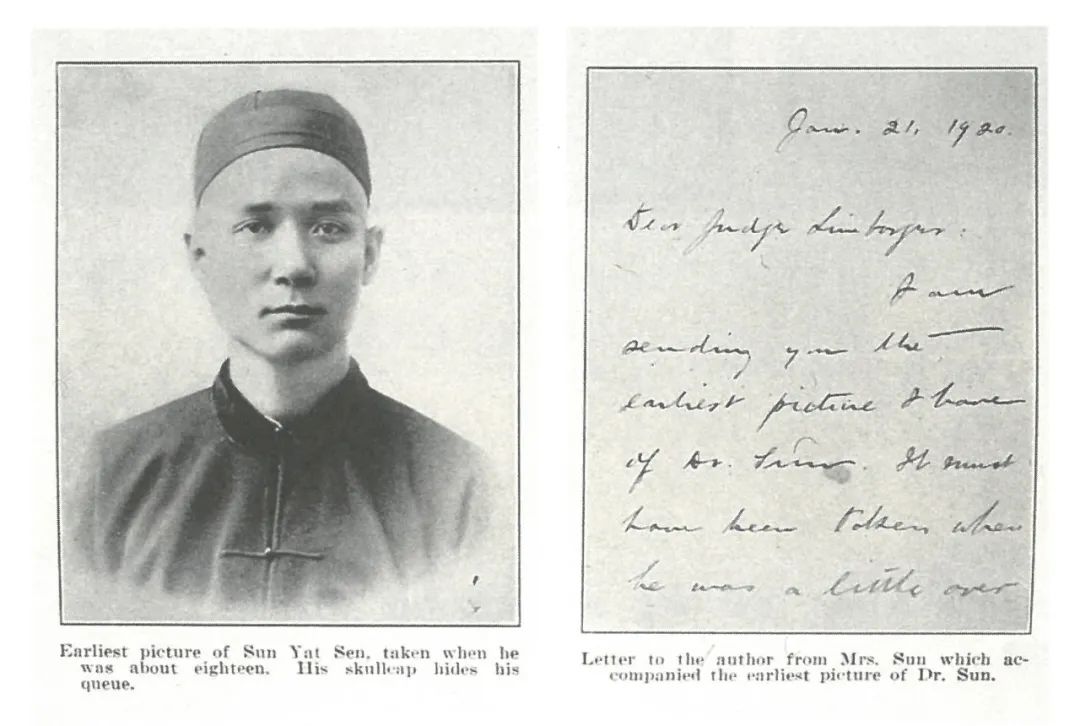 Earliest picture of Sun Yat Sen, taken when he
was about eighteen. His skullcap hides his
queue.
Jan. 21, 1920.
Dear Judge Linbarger:
I am
sending you the
earliest picture I have
of Dr. Sun. It must
have been taken when
he was a little over
Letter to the author from Mrs. Sun which ac-
companied the earliest picture of Dr. Sun.